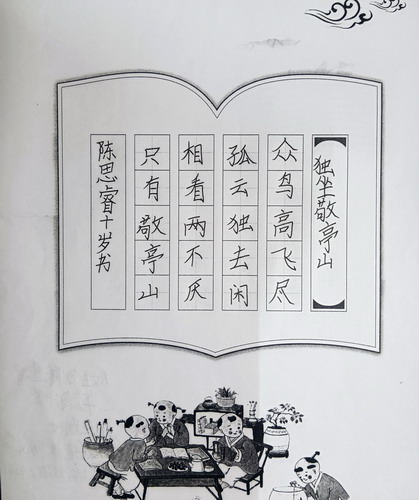 独坐敬亭山
众鸟高飞尽
孤云独去闲
相看两不厌
只有敬亭山
陈思睿十岁书